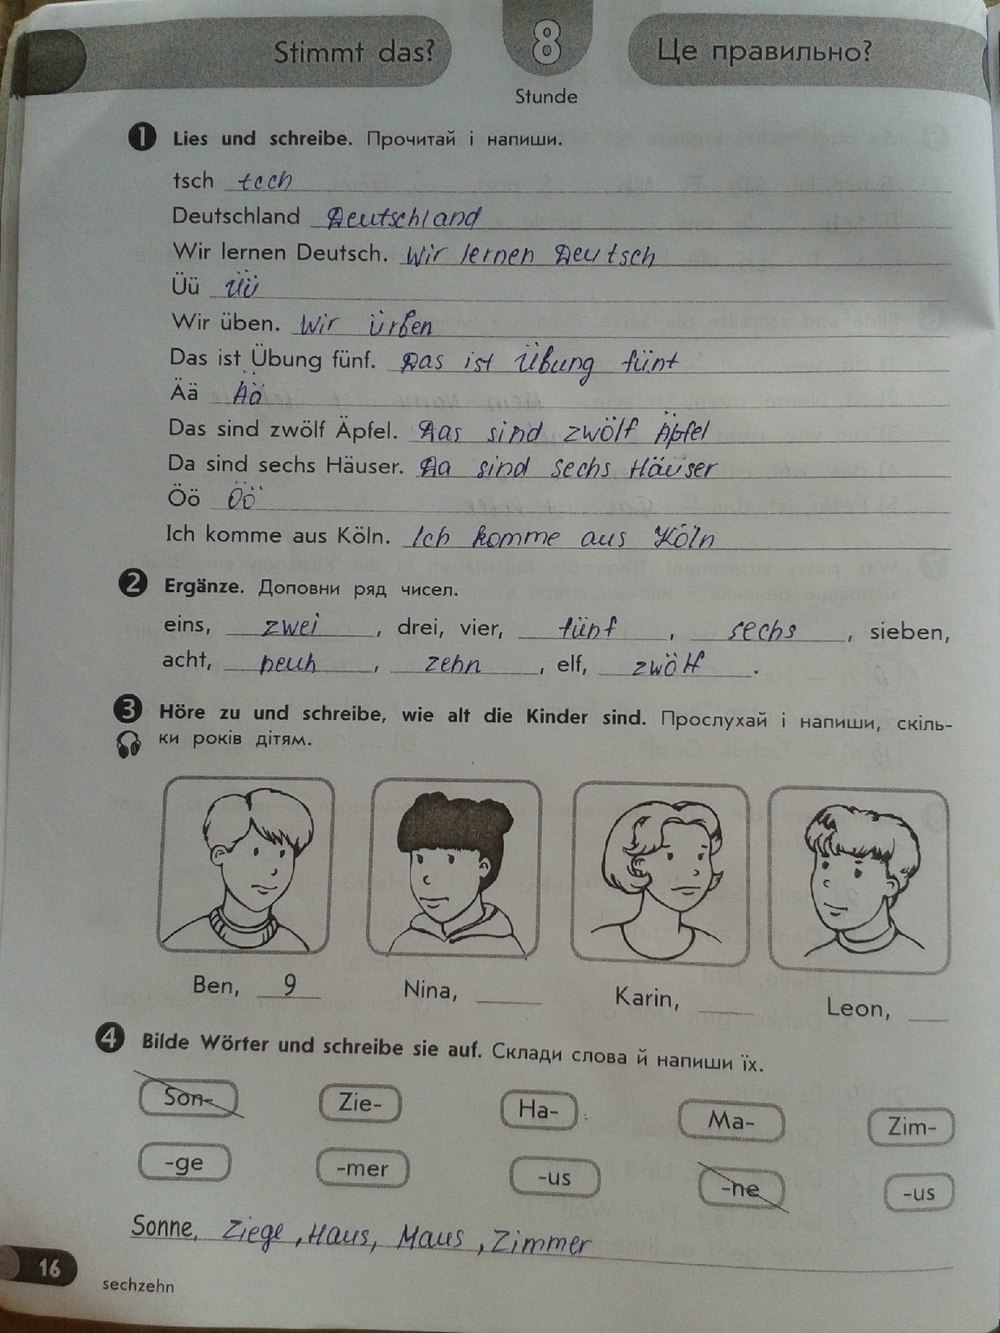 Stimmt das? 8 Це правильно?
Stunde
1 Lies und schreibe. Прочитай і напиши.
tsch tsch
Deutschland Deutschland
Wir lernen Deutsch. Wir lernen Deutsch
Üü Üü
Wir üben. Wir ürben
Das ist Übung fünf. Das ist Übung fünf
Ää Ää
Das sind zwölf Äpfel. Das sind zwölf Äpfel
Da sind sechs Häuser. Da sind sechs Häuser
Öö Öö
Ich komme aus Köln. Ich komme aus Köln
2 Ergänze. Доповни ряд чисел.
eins, zwei, drei, vier, fünf, sechs, sieben,
acht, neun, zehn, elf, zwölf.
3 Höre zu und schreibe, wie alt die Kinder sind. Прослухай і напиши, скіль-
ки років дітям.
Ben, 9 Nina, Karin, Leon,
4 Bilde Wörter und schreibe sie auf. Склади слова й напиши їх.
Son- Zie- Ha- Ma- Zim-
-ge -mer -us -ne -us
Sonne, Ziege, Haus, Maus, Zimmer
16
sechzehn